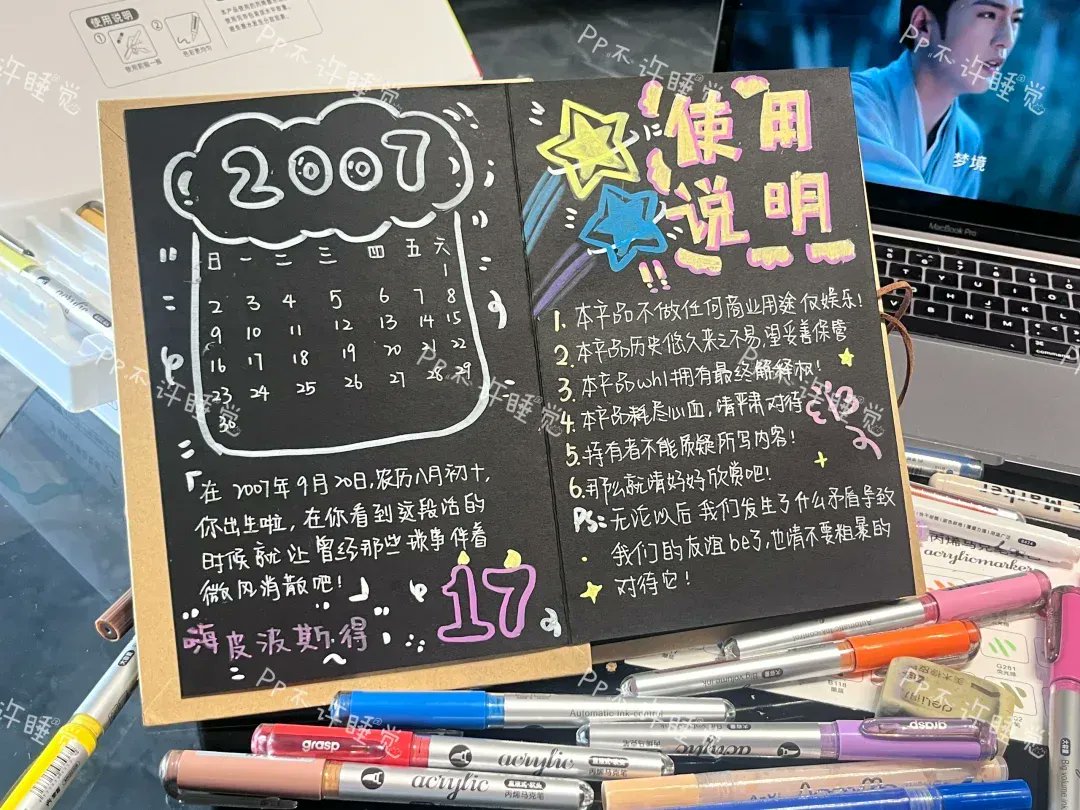 使用说明
① ②
2007
日 一 二 三 四 五 六
1
2 3 4 5 6 7 8
9 10 11 12 13 14 15
16 17 18 19 20 21 22
23 24 25 26 27 28 29
30
在2007年9月20日,农历八月初十,
你出生啦,在你看到这段话的
时候就让曾经那些琐事伴着
微风消散吧!
嗨皮波斯得
17
使用
说明
1. 本产品不做任何商业用途仅娱乐!
2. 本产品历史悠久来之不易,望妥善保管
3. 本产品whl拥有最终解释权!
4. 本产品耗尽心血,请严肃对待
5. 持有者不能质疑所写内容!
6. 那么就请好好欣赏吧!
PS: 无论以后我们发生了什么矛盾导致
我们的友谊be了,也请不要粗暴的
对待它!
梦境
MacBook Pro
command
Marker
丙烯马克笔
acrylicmarker
G261
B118
Automatic ink-control
Big volume ink
grasp
acrylic
丙烯马克笔
acrylic
丙烯马克笔
acrylic
grasp
PP不许睡觉
PP不许睡觉
PP不许睡觉
PP不许睡觉
PP不许睡觉
PP不许睡觉
PP不许睡觉
PP不许睡觉